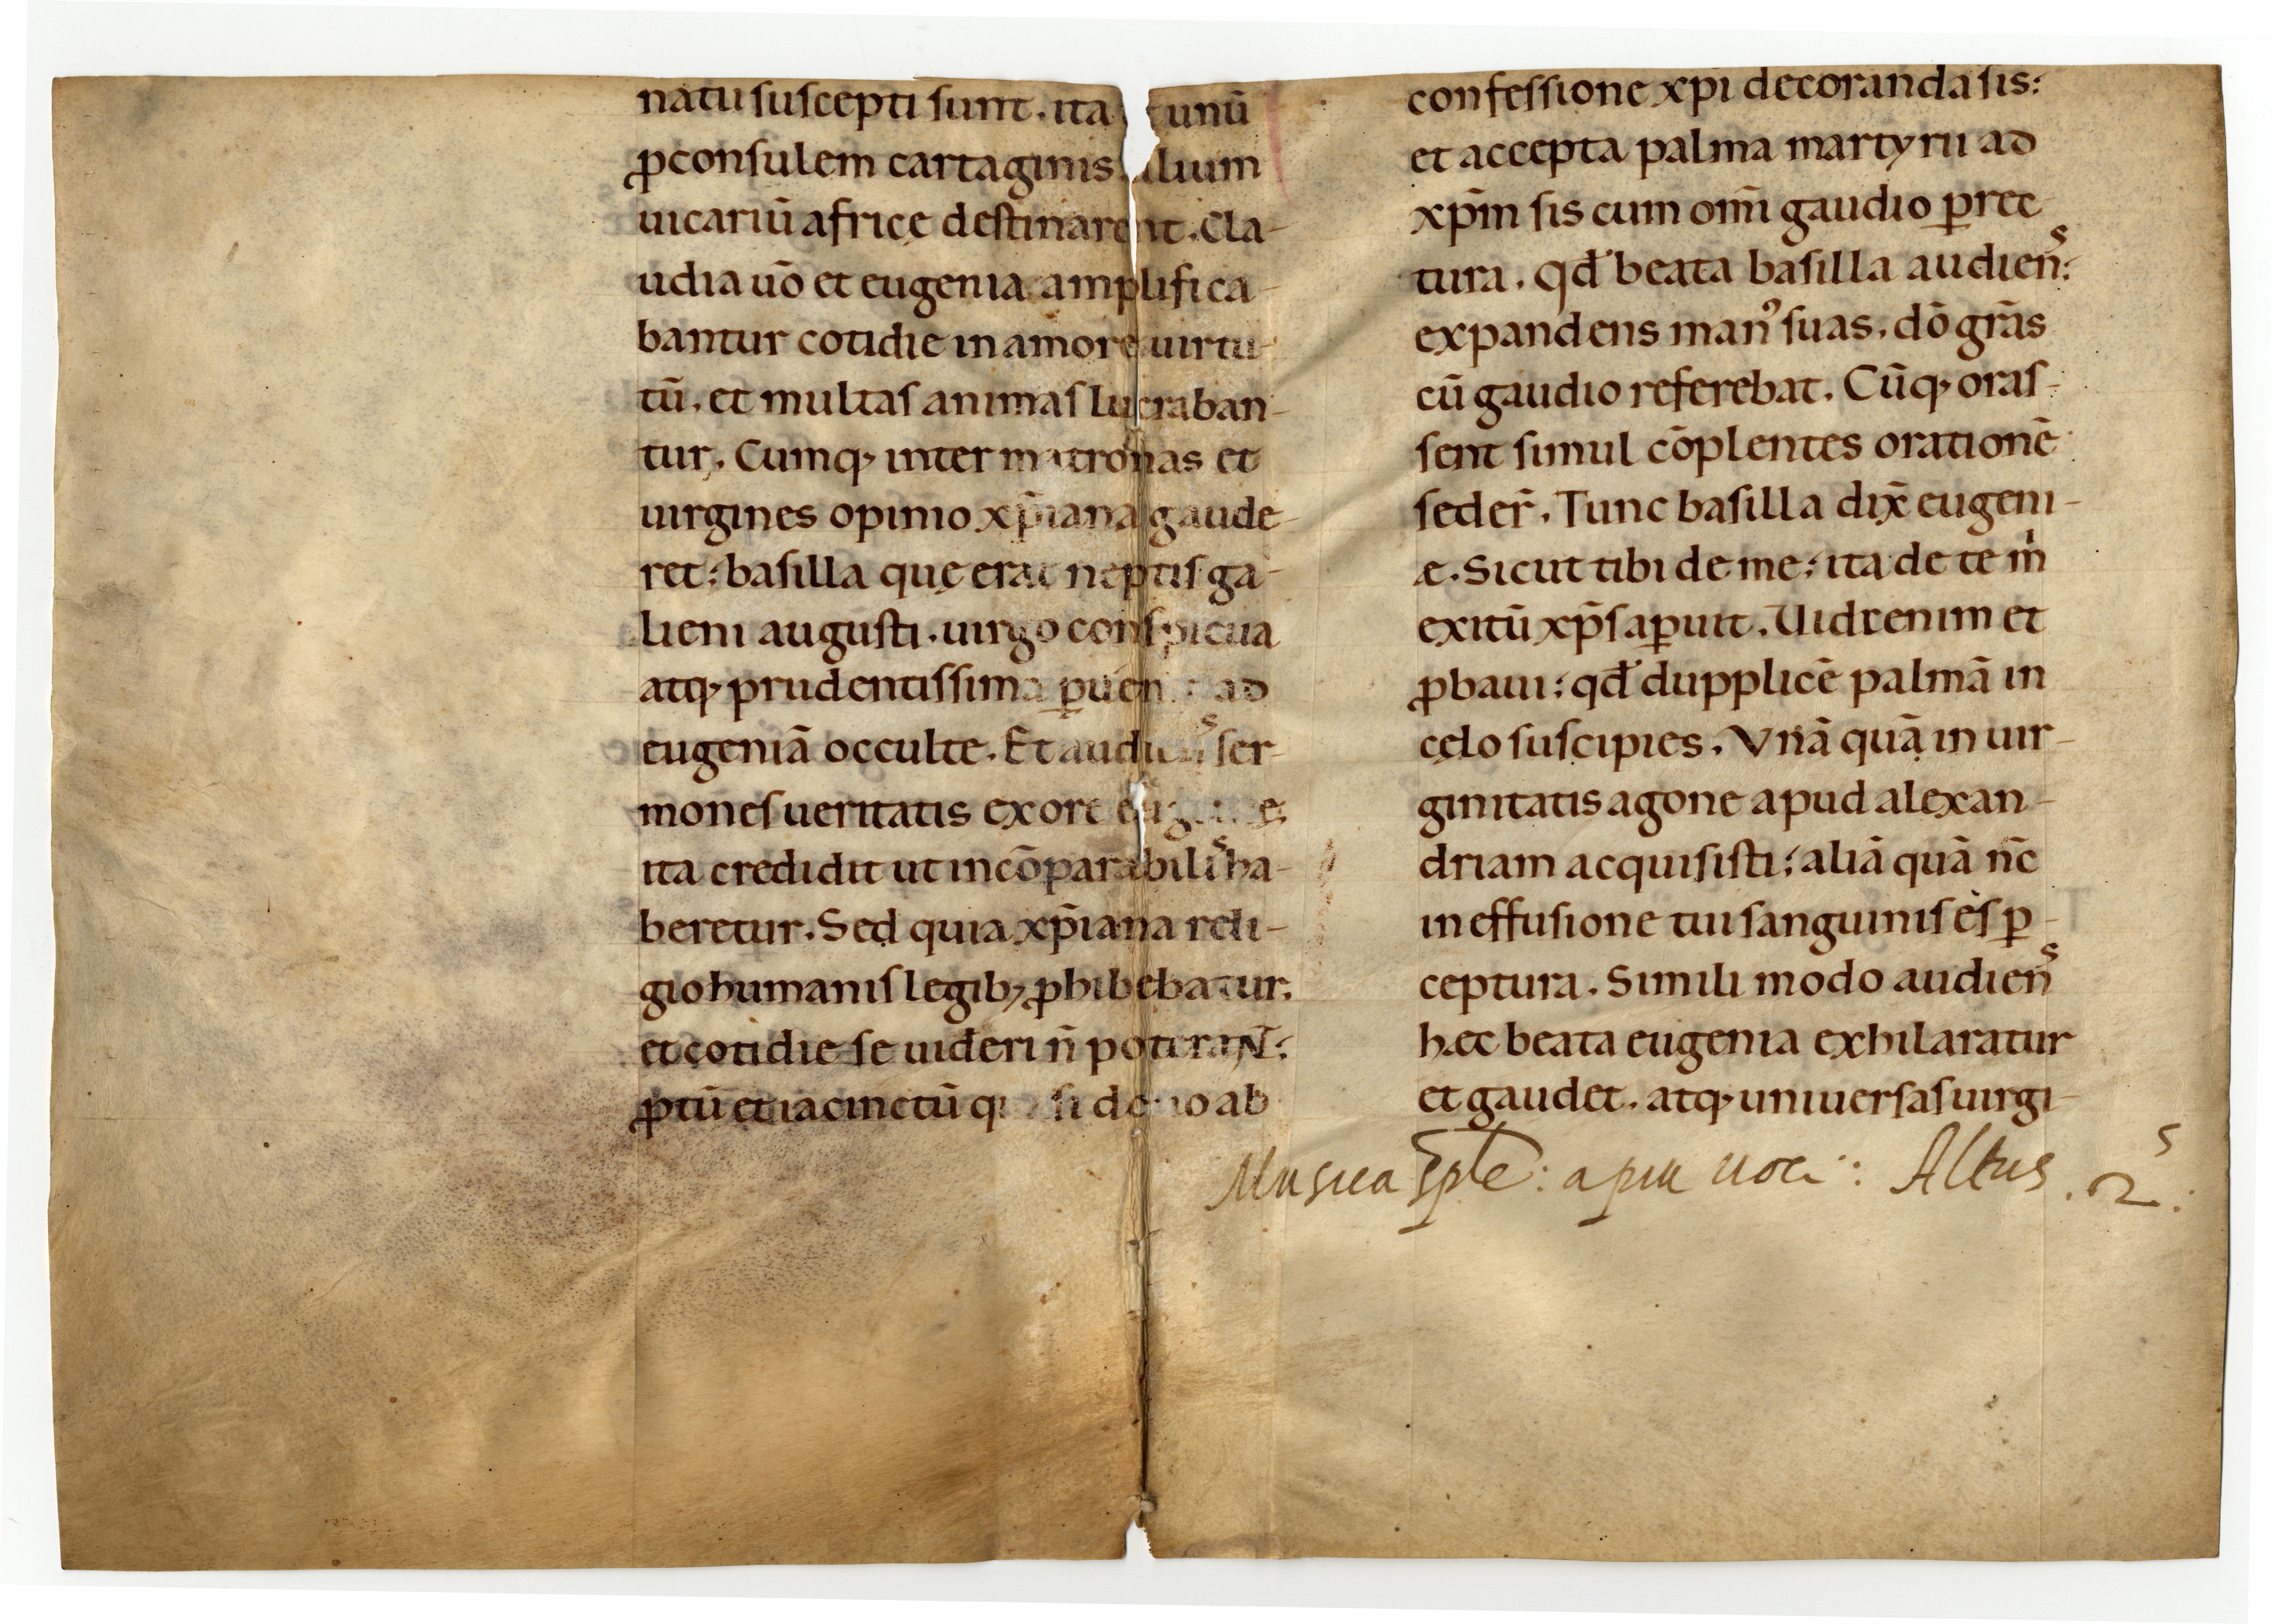 natu suscepti sunt. ita unū
ꝓconsulem cartaginis. alium
uicariū africę destinarent. Cla-
udia uō et eugenia amplifica-
bantur cotidie in amore uirtu-
tū. et multas animas lucraban-
tur. Cumq; inter matronas et
uirgines opinio xp̄iana gaude-
ret; basilla quę erat neptis ga-
lieni augusti. uirgo conspicua
atq; prudentissima ad
eugeniā occulte. Et audienˢ ser-
mones ueritatis ex ore
ita credidit ut incōparabiliˢ ha-
beretur. Sed quia xp̄iana reli-
gio humanis legib; ꝓhibebatur.
et cotidie se uid̄eri n̄ poteraɴᴛ;
ꝓtū et iacinctū quasi dono ab
confessione xp̄i decoranda sis:
et accepta palma martyrii ad
xp̄m sis cum om̄i gaudio ꝑrec
tura. qđ beata basilla audien̄ˢ:
expandens manꝰ suas. dō grās
cū gaudio referebat. Cūq; oras-
sent simul cōplentes orationē
seder̄. Tunc basilla dix̄ eugeni-
æ. Sicut tibi de me; ita de te m̍
exitū xp̄s aꝑuit. Uidr enim et
ꝓbaui; qđ dupplicē palmā in
cęlo suscipies. Vnā quā in uir-
ginitatis agone apud alexan-
driam acquisisti; aliā quā n̄c
in effusione tui sanguinis es ꝑ-
ceptura. Simili modo audien̄ˢ
hæc beata eugenia exhilaratur
et gaudet. atq; uniuersas uirgi-
Musica : a piu uoci : Altus . 2ˢ: